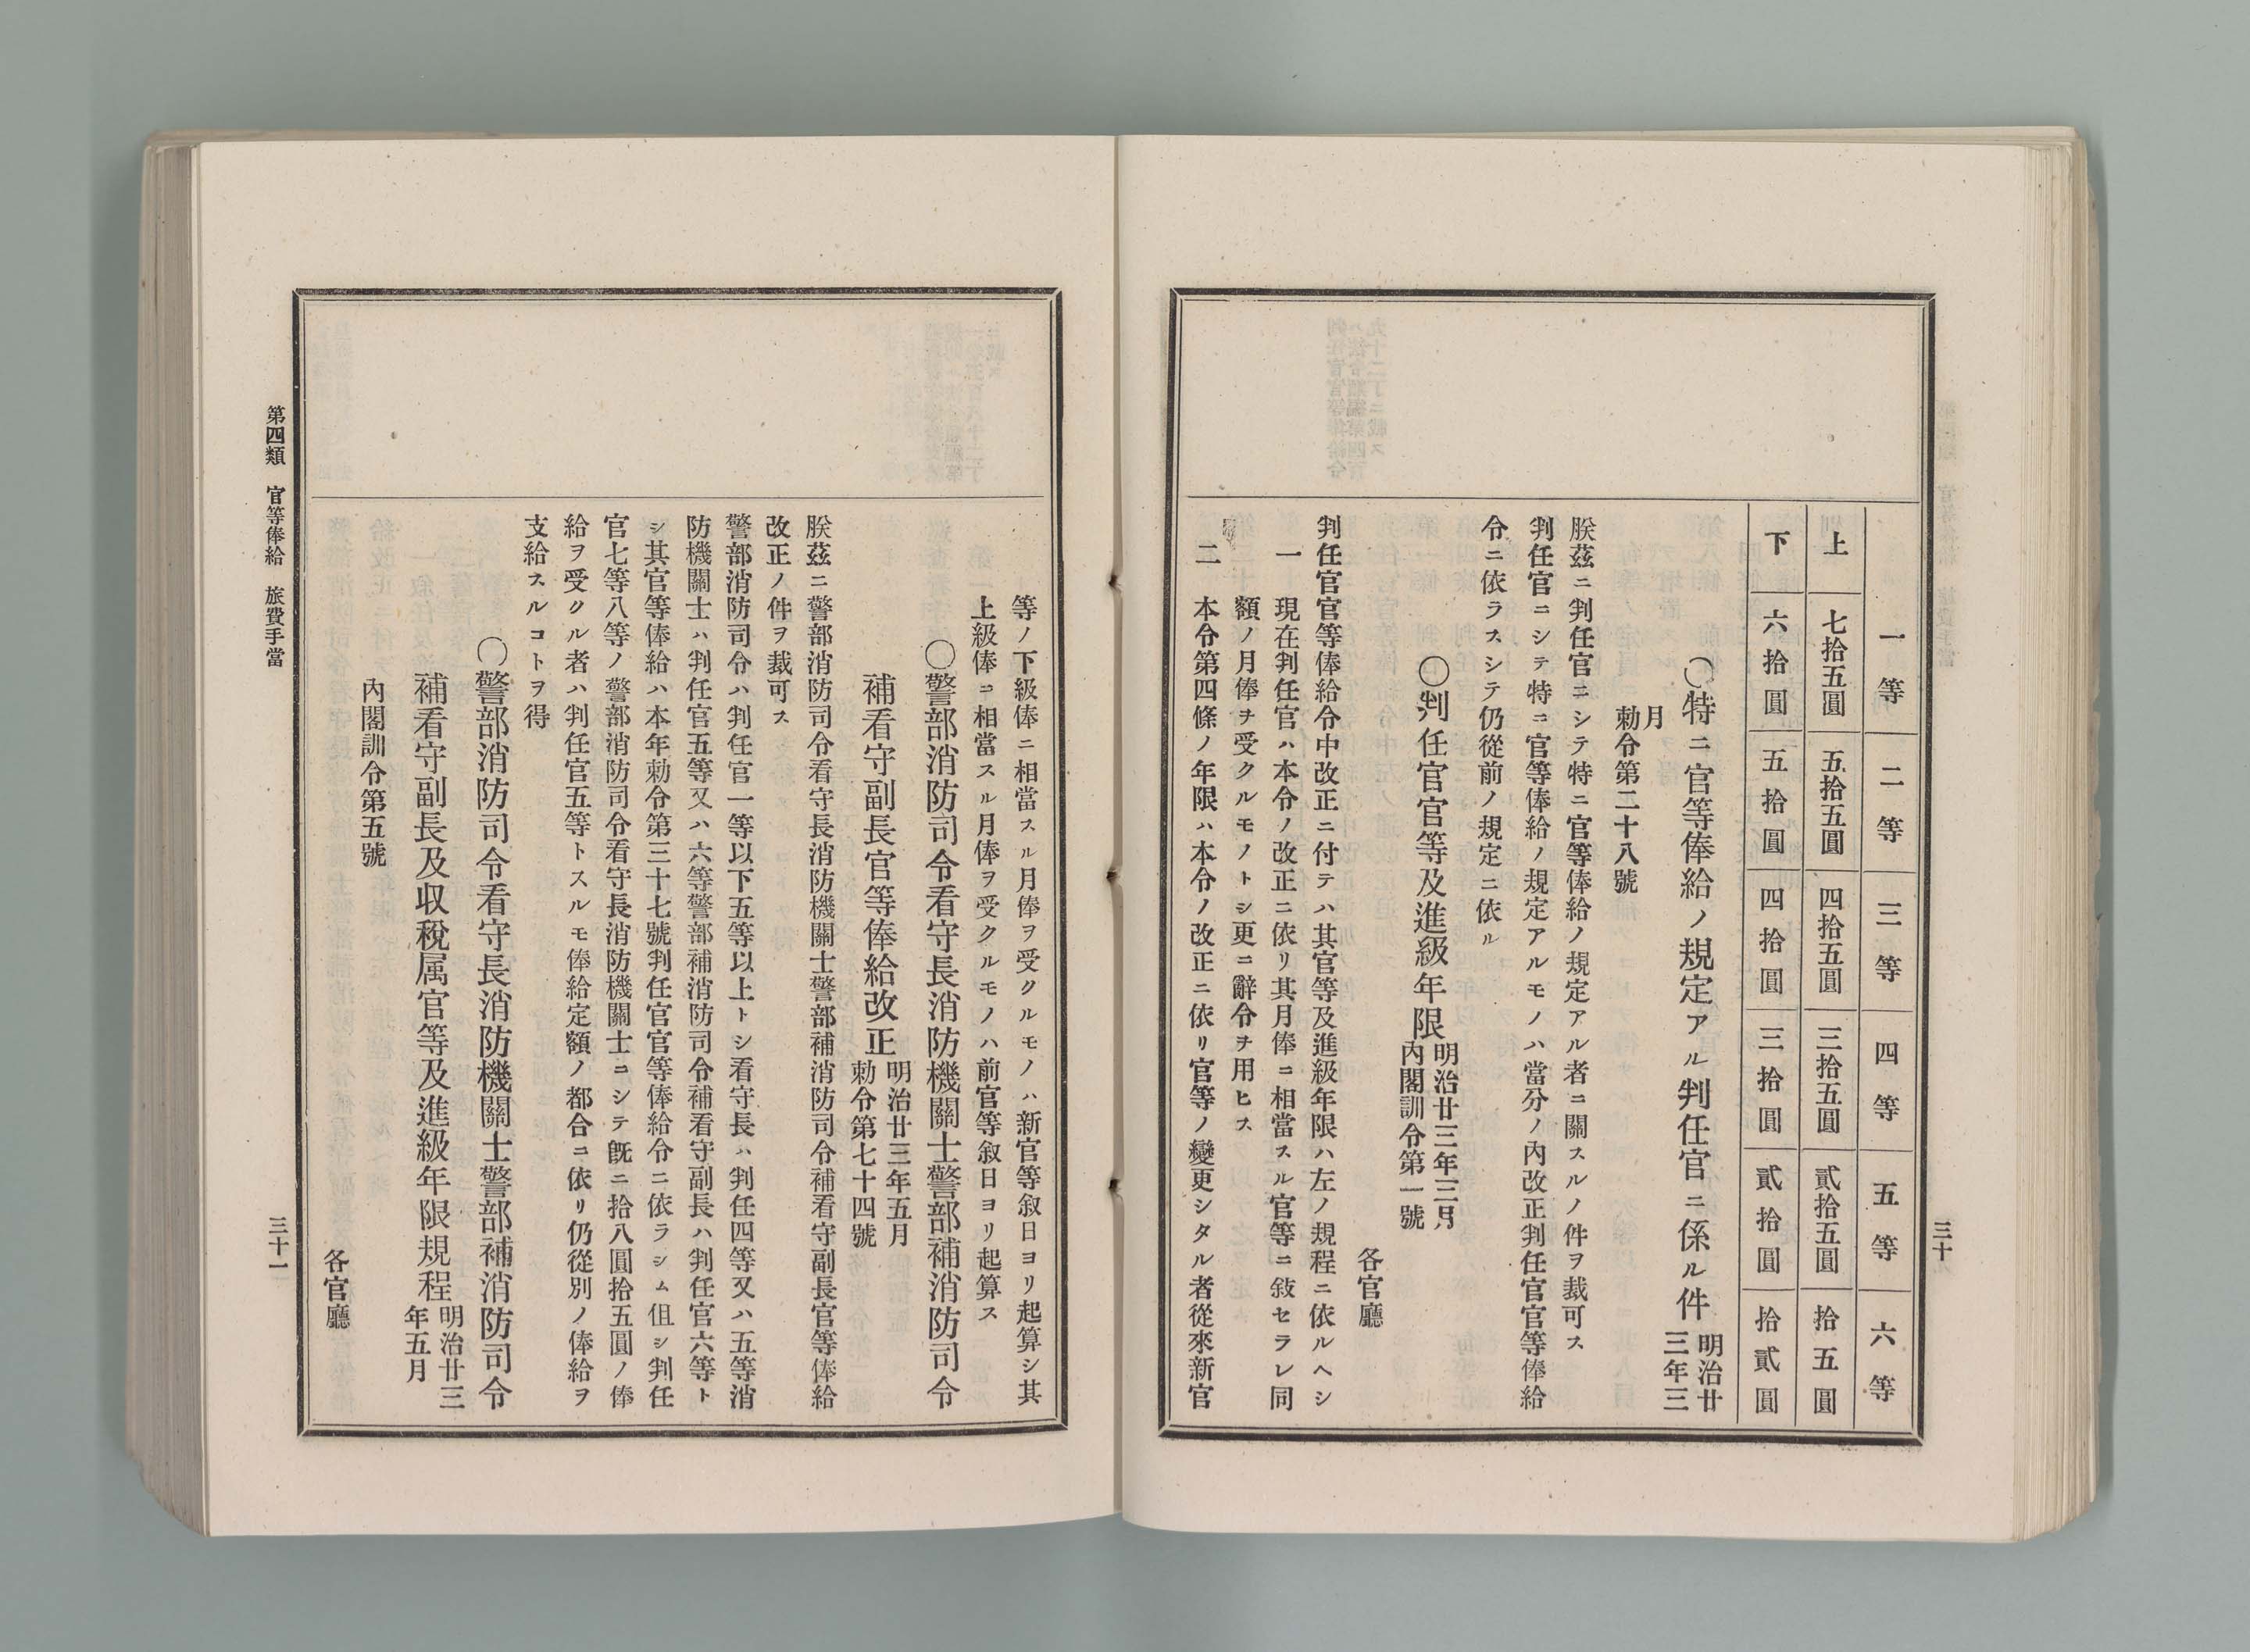 三十
一等 二等 三等 四等 五等 六等
上 七拾五圓 五拾五圓 四拾五圓 三拾五圓 貳拾五圓 拾五圓
下 六拾圓 五拾圓 四拾圓 三拾圓 貳拾圓 拾貳圓
〇特ニ官等俸給ノ規定アル判任官ニ係ル件 明治廿三年三
月
勅令第二十八號
朕茲ニ判任官ニシテ特ニ官等俸給ノ規定アル者ニ關スルノ件ヲ裁可ス
判任官ニシテ特ニ官等俸給ノ規定アルモノハ當分ノ內改正判任官官等俸給
令ニ依ラスシテ仍從前ノ規定ニ依ル
〇判任官官等及進級年限 明治廿三年三月
內閣訓令第一號
各官廳
判任官官等俸給令中改正ニ付テハ其官等及進級年限ハ左ノ規程ニ依ルヘシ
一 現在判任官ハ本令ノ改正ニ依リ其月俸ニ相當スル官等ニ敍セラレ同
額ノ月俸ヲ受クルモノトシ更ニ辭令ヲ用ヒス
二 本令第四條ノ年限ハ本令ノ改正ニ依リ官等ノ變更シタル者從來新官
等ノ下級俸ニ相當スル月俸ヲ受クルモノハ新官等叙日ヨリ起算シ其
上級俸ニ相當スル月俸ヲ受クルモノハ前官等叙日ヨリ起算ス
〇警部消防司令看守長消防機關士警部補消防司令
補看守副長官等俸給改正 明治廿三年五月
勅令第七十四號
朕茲ニ警部消防司令看守長消防機關士警部補消防司令補看守副長官等俸給
改正ノ件ヲ裁可ス
警部消防司令ハ判任官一等以下五等以上トシ看守長ハ判任四等又ハ五等消
防機關士ハ判任官五等又ハ六等警部補消防司令補看守副長ハ判任官六等ト
シ其官等俸給ハ本年勅令第三十七號判任官官等俸給令ニ依ラシム伹シ判任
官七等八等ノ警部消防司令看守長消防機關士ニシテ旣ニ拾八圓拾五圓ノ俸
給ヲ受クル者ハ判任官五等トスルモ俸給定額ノ都合ニ依リ仍從別ノ俸給ヲ
支給スルコトヲ得
〇警部消防司令看守長消防機關士警部補消防司令
補看守副長及収稅属官等及進級年限規程 明治廿三
年五月
內閣訓令第五號
各官廳
第四類 官等俸給 旅費手當
三十一